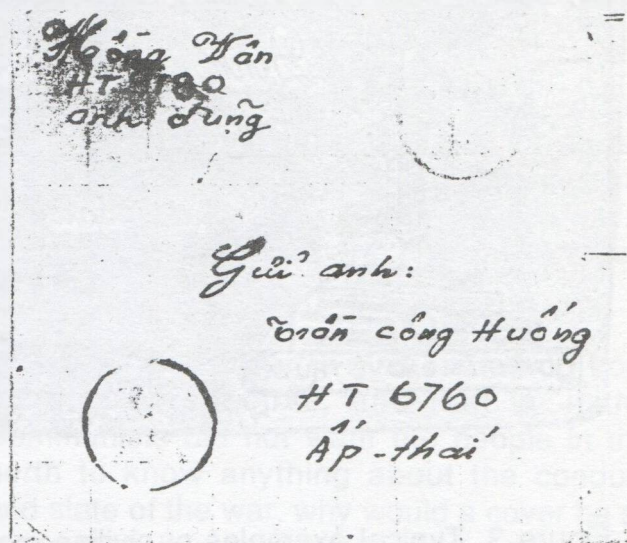 Hoàng Vân
HT
anh dũng
Gửi anh:
Trần công Huống
HT 6760
Ấp-thái